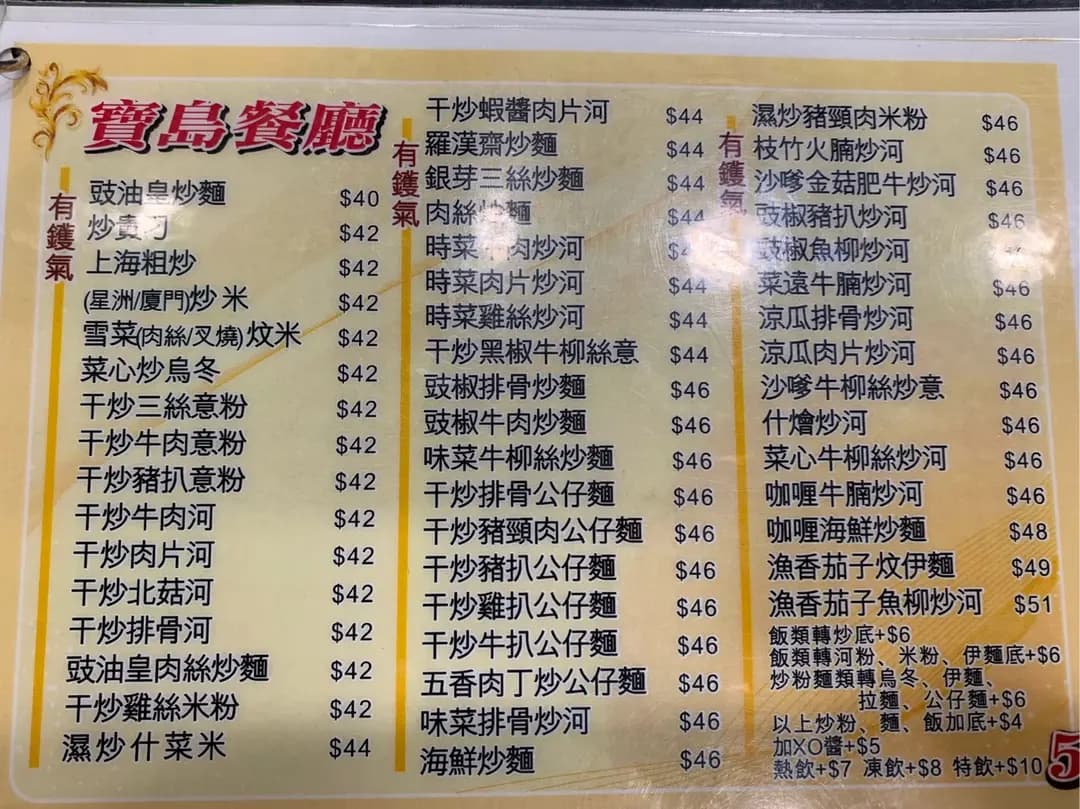 寶島餐廳
有鑊氣
豉油皇炒麵 $40
炒貴刁 $42
上海粗炒 $42
(星洲/廈門)炒米 $42
雪菜(肉絲/叉燒)炆米 $42
菜心炒烏冬 $42
干炒三絲意粉 $42
干炒牛肉意粉 $42
干炒豬扒意粉 $42
干炒牛肉河 $42
干炒肉片河 $42
干炒北菇河 $42
干炒排骨河 $42
豉油皇肉絲炒麵 $42
干炒雞絲米粉 $42
濕炒什菜米 $44
有鑊氣
干炒蝦醬肉片河 $44
羅漢齋炒麵 $44
銀芽三絲炒麵 $44
肉絲炒麵 $44
時菜牛肉炒河
時菜肉片炒河 $44
時菜雞絲炒河 $44
干炒黑椒牛柳絲意 $44
豉椒排骨炒麵 $46
豉椒牛肉炒麵 $46
味菜牛柳絲炒麵 $46
干炒排骨公仔麵 $46
干炒豬頸肉公仔麵 $46
干炒豬扒公仔麵 $46
干炒雞扒公仔麵 $46
干炒牛扒公仔麵 $46
五香肉丁炒公仔麵 $46
味菜排骨炒河 $46
海鮮炒麵 $46
有鑊氣
濕炒豬頸肉米粉 $46
枝竹火腩炒河 $46
沙嗲金菇肥牛炒河 $46
豉椒豬扒炒河 $46
豉椒魚柳炒河
菜遠牛腩炒河 $46
涼瓜排骨炒河 $46
涼瓜肉片炒河 $46
沙嗲牛柳絲炒意 $46
什燴炒河 $46
菜心牛柳絲炒河 $46
咖喱牛腩炒河 $46
咖喱海鮮炒麵 $48
漁香茄子炆伊麵 $49
漁香茄子魚柳炒河 $51
飯類轉炒底+$6
飯類轉河粉、米粉、伊麵底+$6
炒粉麵類轉烏冬、伊麵、
拉麵、公仔麵+$6
以上炒粉、麵、飯加底+$4
加XO醬+$5
熱飲+$7 凍飲+$8 特飲+$10
5